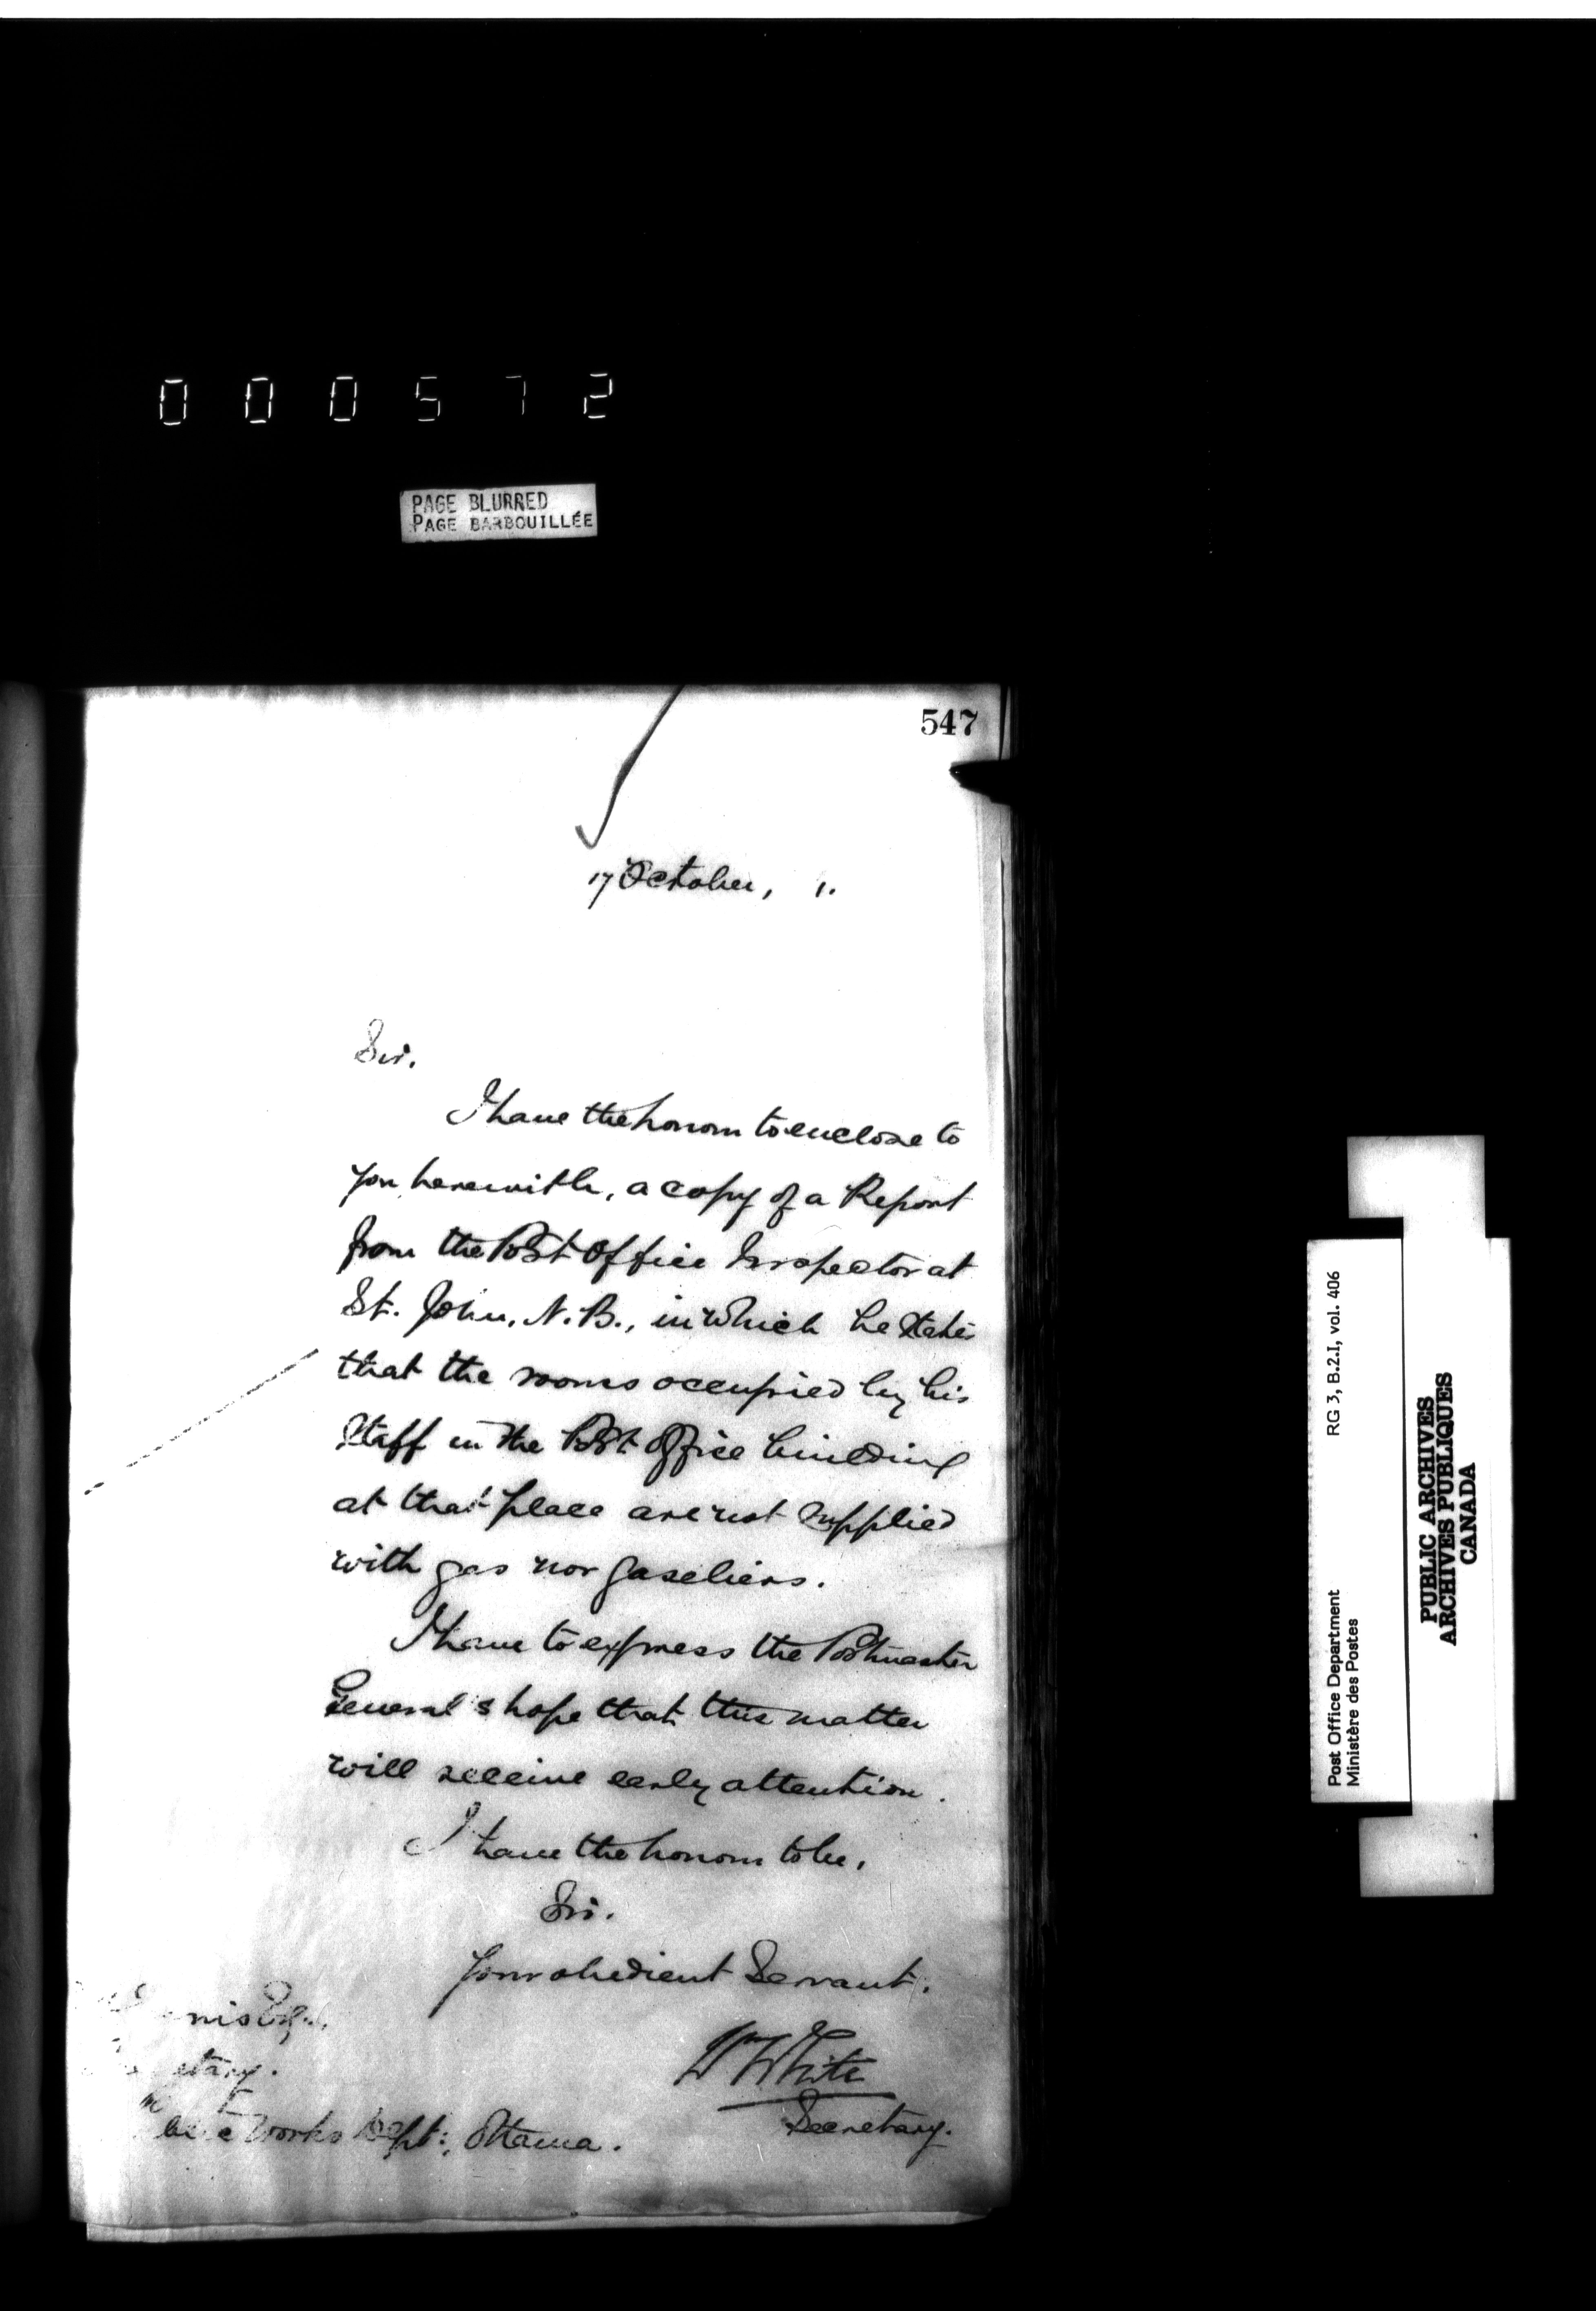 000572
PAGE BLURRED
PAGE BARBOUILLÉE
547
17 October, 1.
Sir.
I have the honour to enclose to
you herewith, a copy of a Report
from the Post Office Inspector at
St. John, N.B., in which he states
that the rooms occupied by his
Staff in the Post Office building
at that place are not supplied
with gas nor gaseliers.
I have to express the Postmaster
General's hope that this matter
will receive early attention.
I have the honour to be,
Sir.
Your obedient Servant.
Wm White
Secretary.
nis Esq.
etary.
Works Dept:, Ottawa.
Post Office Department
Ministère des Postes
RG 3, B.2.I, vol. 406
PUBLIC ARCHIVES
ARCHIVES PUBLIQUES
CANADA